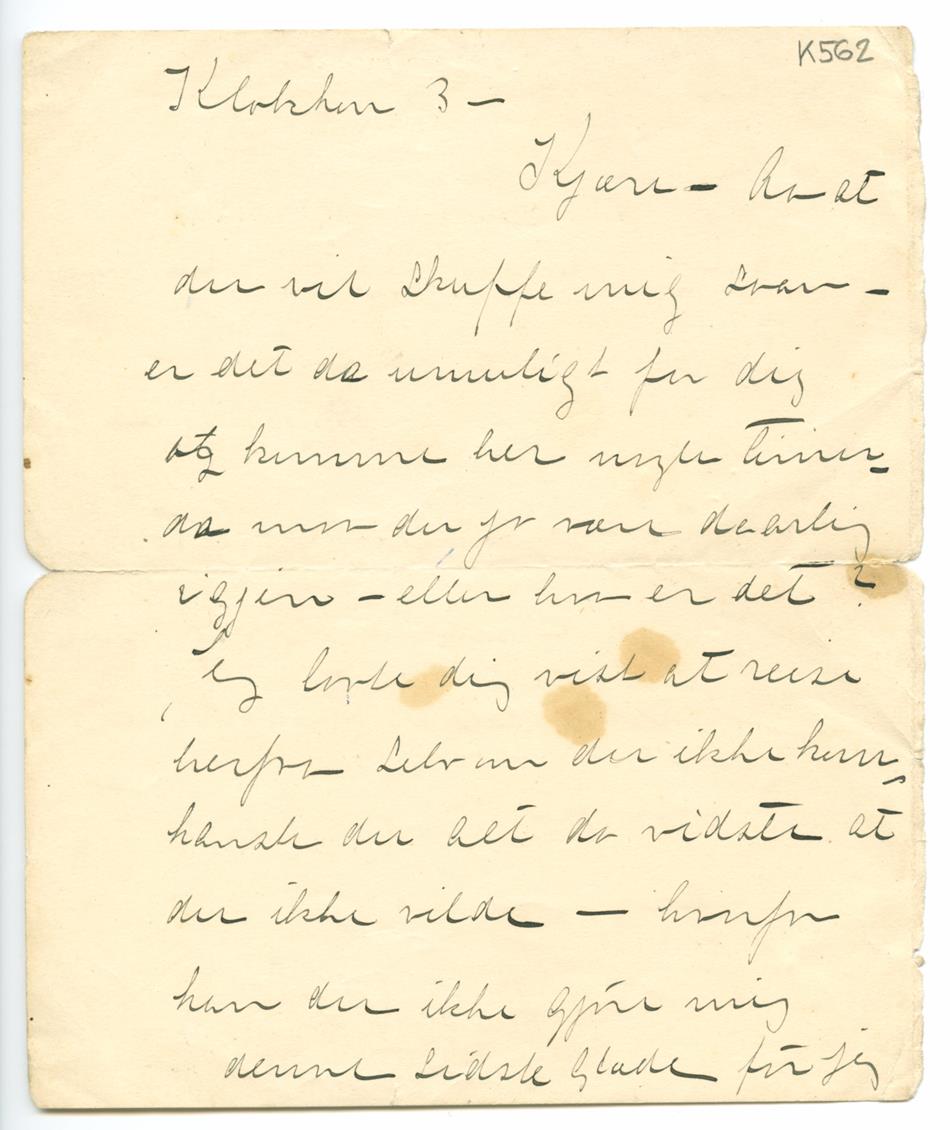 K562
Klokken 3 –
Kjære – Aa at
du vil skuffe mig saan –
er det da umuligt for dig
at komme her nogle timer –
da maa du jo være daarlig
igjen – eller hva er det?
Jeg lovte dig vist at reise
herfra selv om du ikke kom,
kanske du alt da vidste at
du ikke vilde – hvorfor
kan du ikke gjøre mig
denne sidste Glæde før jeg